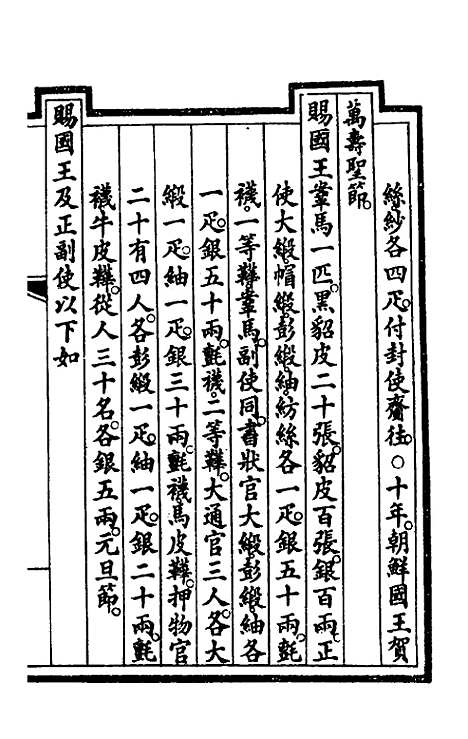 絲紗各四疋。付封使齎往。○十年。朝鮮國王賀
萬壽聖節。
賜國王鞌馬一匹。黑貂皮二十張。貂皮百張。銀百兩。正
使大緞帽緞。彭緞。紬。紡絲各一疋。銀五十兩。氈
襪。一等鞾鞌馬。副使同。書狀官大緞彭緞紬各
一疋。銀五十兩。氈襪。二等鞾。大通官三人。各大
緞一疋。紬一疋。銀三十兩。氈襪。馬皮鞾。押物官
二十有四人。各彭緞一疋。紬一疋。銀二十兩。氈
襪牛皮鞾。從人三十名。各銀五兩。元旦節。
賜國王及正副使以下如